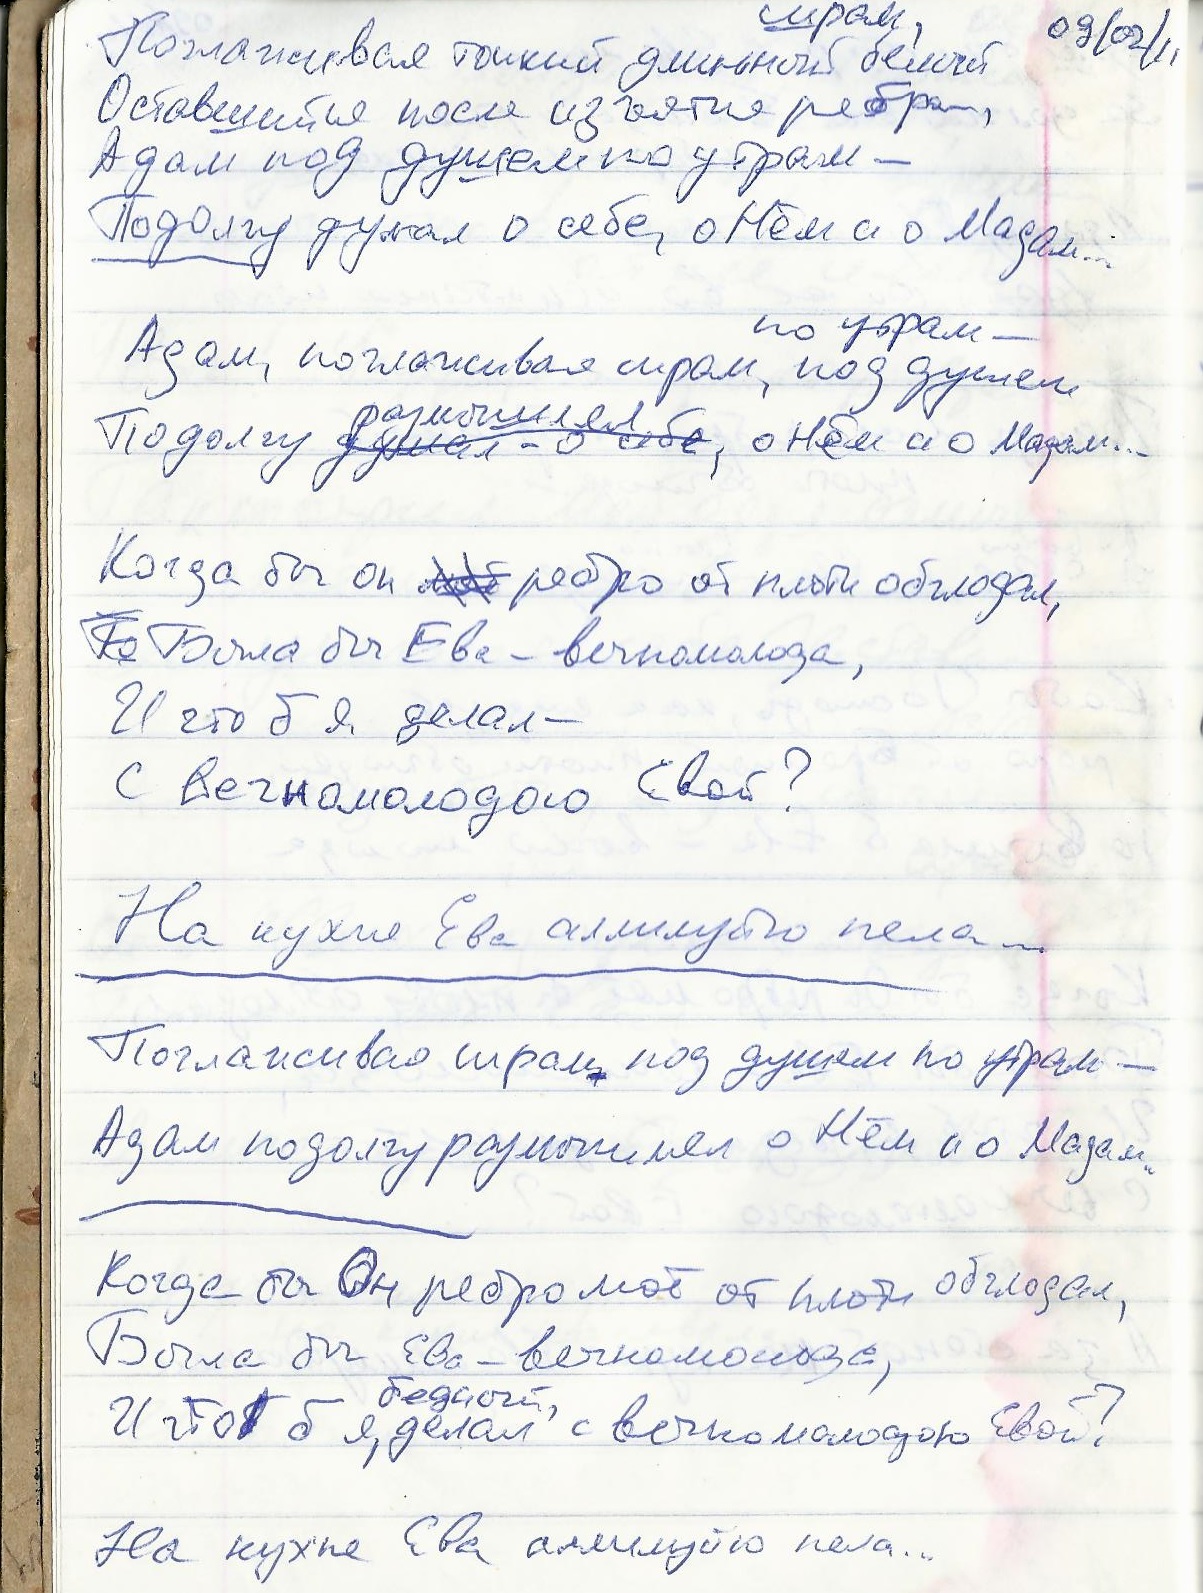 шрам,
09/02/11
Поглаживая тонкий длинный белый
Оставшийся после изъятия ребра,
Адам под душем по утрам —
Подолгу думал о себе, о Нём и о Мадам...
по утрам —
Адам, поглаживая шрам, под душем
размышлял
Подолгу думал - о себе, о Нём и о Мадам...
Когда бы он моё ребро от плоти обглодал,
То Была бы Ева - вечномолода,
И что б я делал —
С вечномолодою Евой?
На кухне Ева аллилуйю пела...
Поглаживая шрам, под душем по утрам —
Адам подолгу размышлял о Нём и о Мадам...
Когда бы Он ребро моё от плоти обглодал,
Была бы Ева - вечномолода,
бедный,
И что б я, делал с вечномолодою Евой?
На кухне Ева аллилуйю пела...